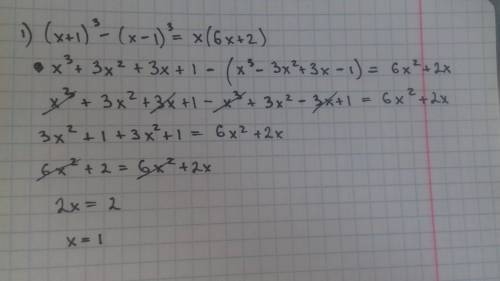 1) (x+1)³ - (x-1)³ = x(6x+2)
x³ + 3x² + 3x + 1 - (x³ - 3x² + 3x - 1) = 6x² + 2x
x³ + 3x² + 3x + 1 - x³ + 3x² - 3x + 1 = 6x² + 2x
3x² + 1 + 3x² + 1 = 6x² + 2x
6x² + 2 = 6x² + 2x
2x = 2
x = 1